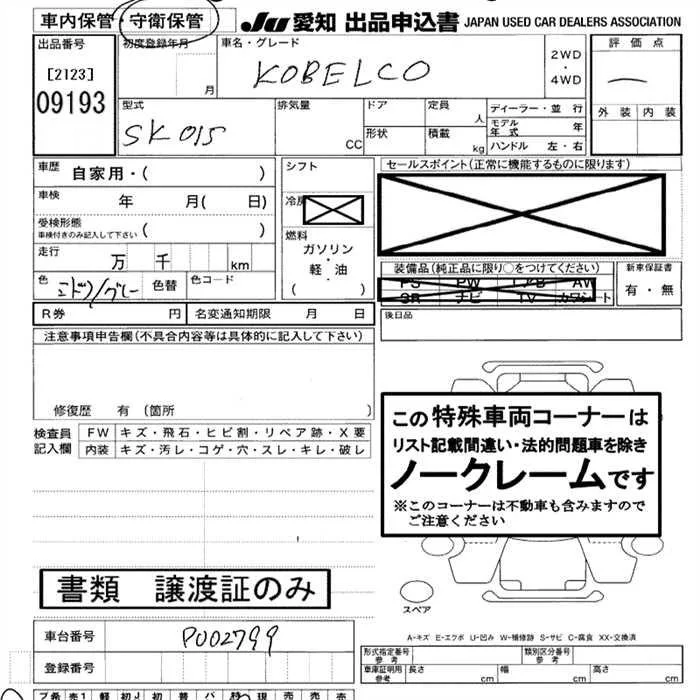 車内保管・守衛保管
JU 愛知 出品申込書 JAPAN USED CAR DEALERS ASSOCIATION
出品番号
[2123]
09193
初度登録年月
月
車名・グレード
KOBELCO
2WD
・
4WD
評価点
外装 内装
型式
SK015
排気量
CC
ドア
形状
定員
人
積載
kg
ディーラー・並行
モデル年式 年
ハンドル 左・右
車歴 自家用・( )
車検 年 月( 日)
受検形態
車検付きのみ記入して下さい ( )
走行 万 千 km
色 ミドリ/グレー 色替 色コード
シフト
冷房
燃料
ガソリン
・
軽・油
( )
セールスポイント(正常に機能するものに限ります)
装備品(純正品に限り○をつけてください)
PS PW エアB AW
SR ナビ TV カワシート
新車保証書
有・無
R券 円 名変通知期限 月 日
後日品
注意事項申告欄(不具合内容等は具体的に記入して下さい)
修復歴 有 (箇所 )
検査員
記入欄
FW キズ・飛石・ヒビ割・リペア跡・X要
内装 キズ・汚レ・コゲ・穴・スレ・キレ・破レ
この特殊車両コーナーは
リスト記載間違い・法的問題車を除き
ノークレームです
※このコーナーは不動車も含みますので
ご注意ください
書類 譲渡証のみ
スペア
A-キズ E-エクボ U-凹み W-補修跡 S-サビ C-腐食 XX-交換済
車台番号 PU02799
登録番号
形式指定番号
参考
類別区分番号
参考
車庫証明用
参考
長さ cm 幅 cm 高さ cm